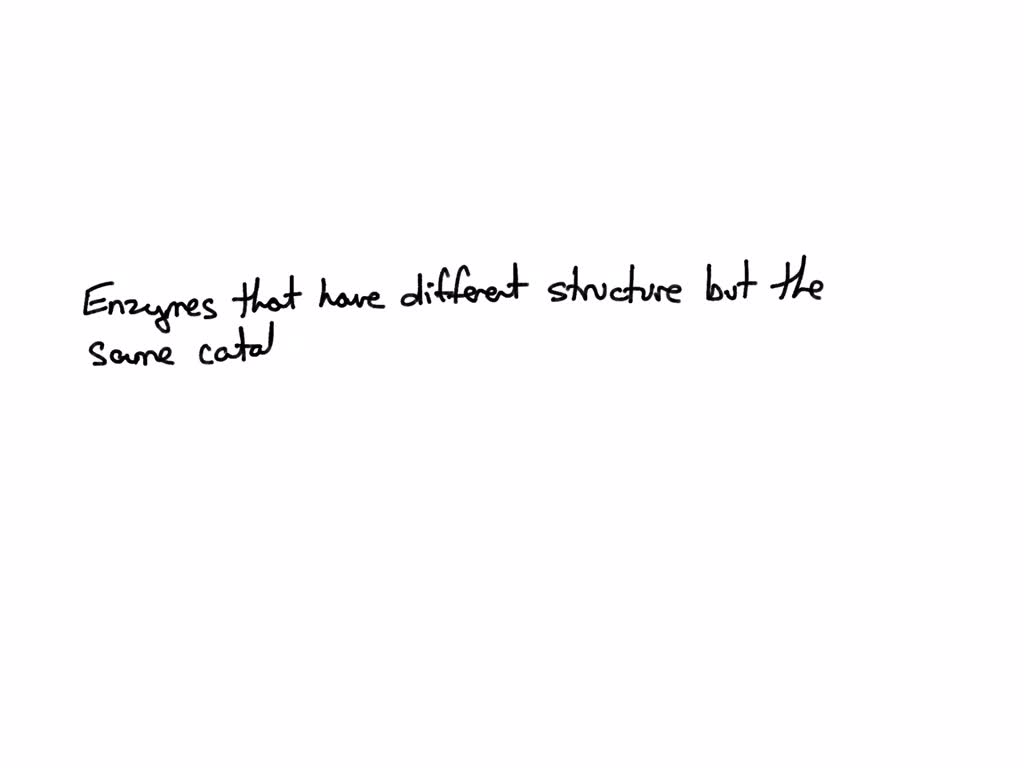 Enzymes that have different structure but the
same catal